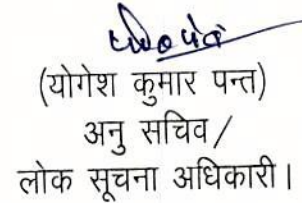 (योगेश कुमार पन्त)
अनु सचिव/
लोक सूचना अधिकारी।